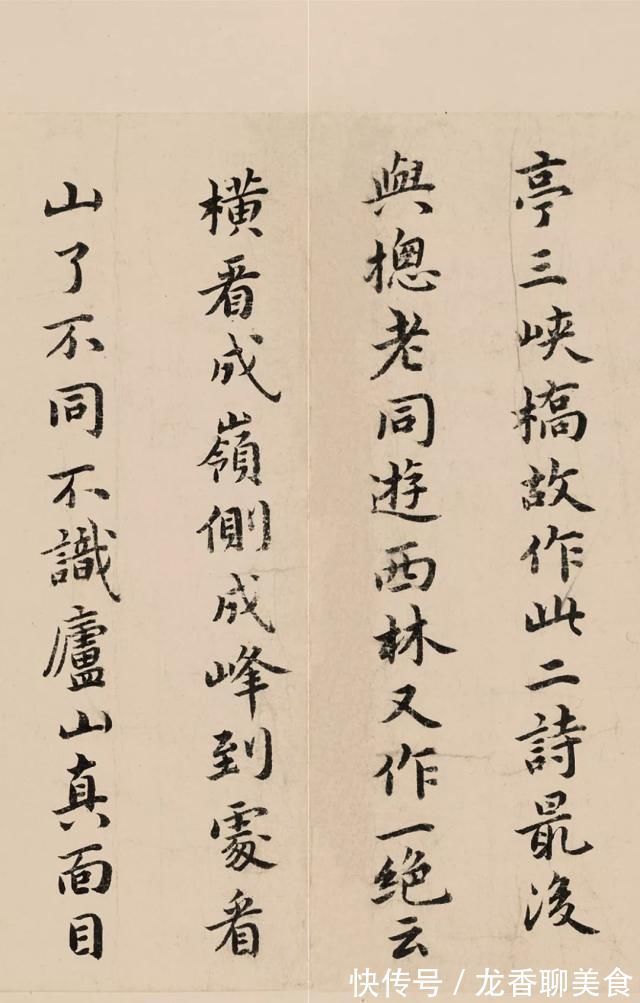 亭三峽橋故作此二詩最後
與摠老同遊西林又作一絶云
橫看成嶺側成峰到處看
山了不同不識廬山真面目
快传号/龙香聊美食